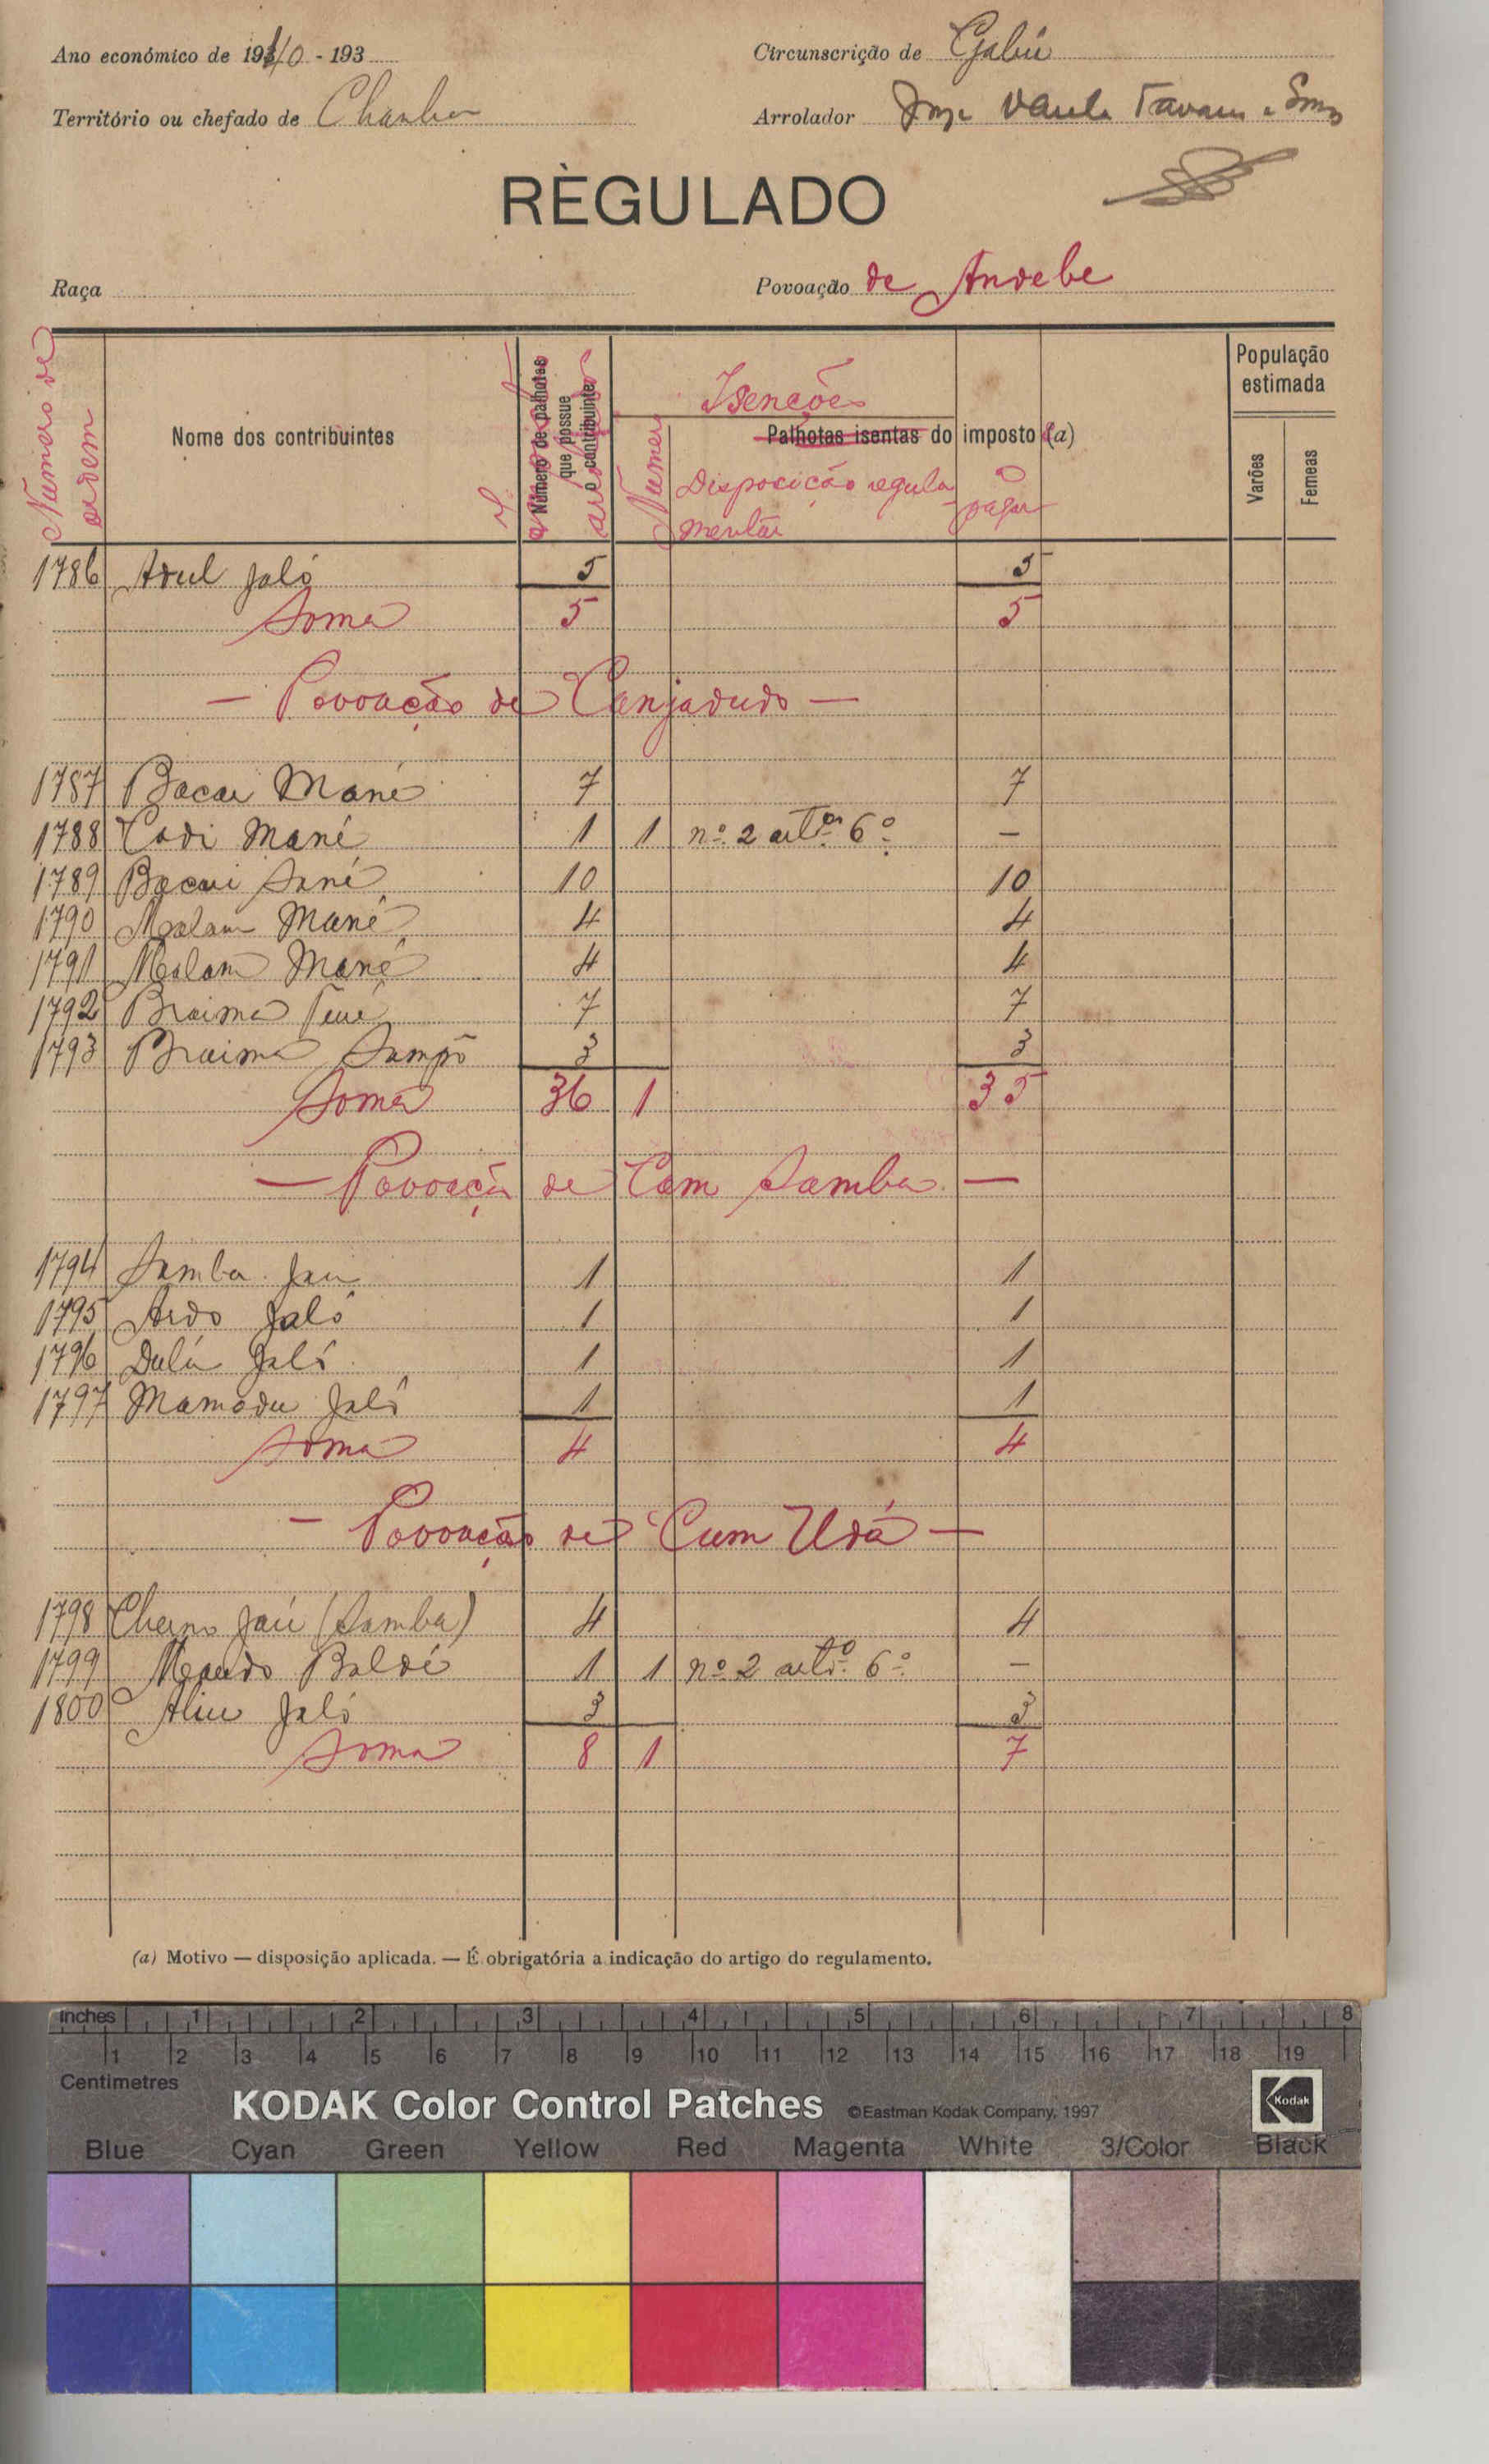 Ano económico de 1940 - 193
Circunscrição de Gabú
Território ou chefado de Chanha
Arrolador Jorge Tavares
RÈGULADO
Raça
Povoação de Andebe
Número de ordem
Nome dos contribuintes
Número de palhotas que possue o contribuinte
Isenções
Número
Palhotas isentas do imposto (a)
Disposição regula
mentar
A pagar
População estimada
Varões
Femeas
1786 Adul Jaló 5 5
Soma 5 5
— Povoação de Canjadudo —
1787 Bacar Mané 7 7
1788 Codi Mané 1 1 nº 2 artº 6º —
1789 Bacari Sané 10 10
1790 Malam Mané 4 4
1791 Malam Mané 4 4
1792 Braima 7 7
1793 Braima Sampò 3 3
Soma 36 1 35
— Povoação de Cam Samba —
1794 Samba Jau 1 1
1795 Ardo Jaló 1 1
1796 Dulá Jaló 1 1
1797 Mamadu Jaló 1 1
Soma 4 4
— Povoação de Cum Udá —
1798 Cherno Jaú (Samba) 4 4
1799 Maudo Baldé 1 1 nº 2 artº 6º —
1800 Aliu Jaló 3 3
Soma 8 1 7
(a) Motivo — disposição aplicada. — É obrigatória a indicação do artigo do regulamento.
inches 1 2 3 4 5 6 7 8
1 2 3 4 5 6 7 8 9 10 11 12 13 14 15 16 17 18 19
Centimetres
KODAK Color Control Patches ©Eastman Kodak Company, 1997 Kodak
Blue Cyan Green Yellow Red Magenta White 3/Color Black